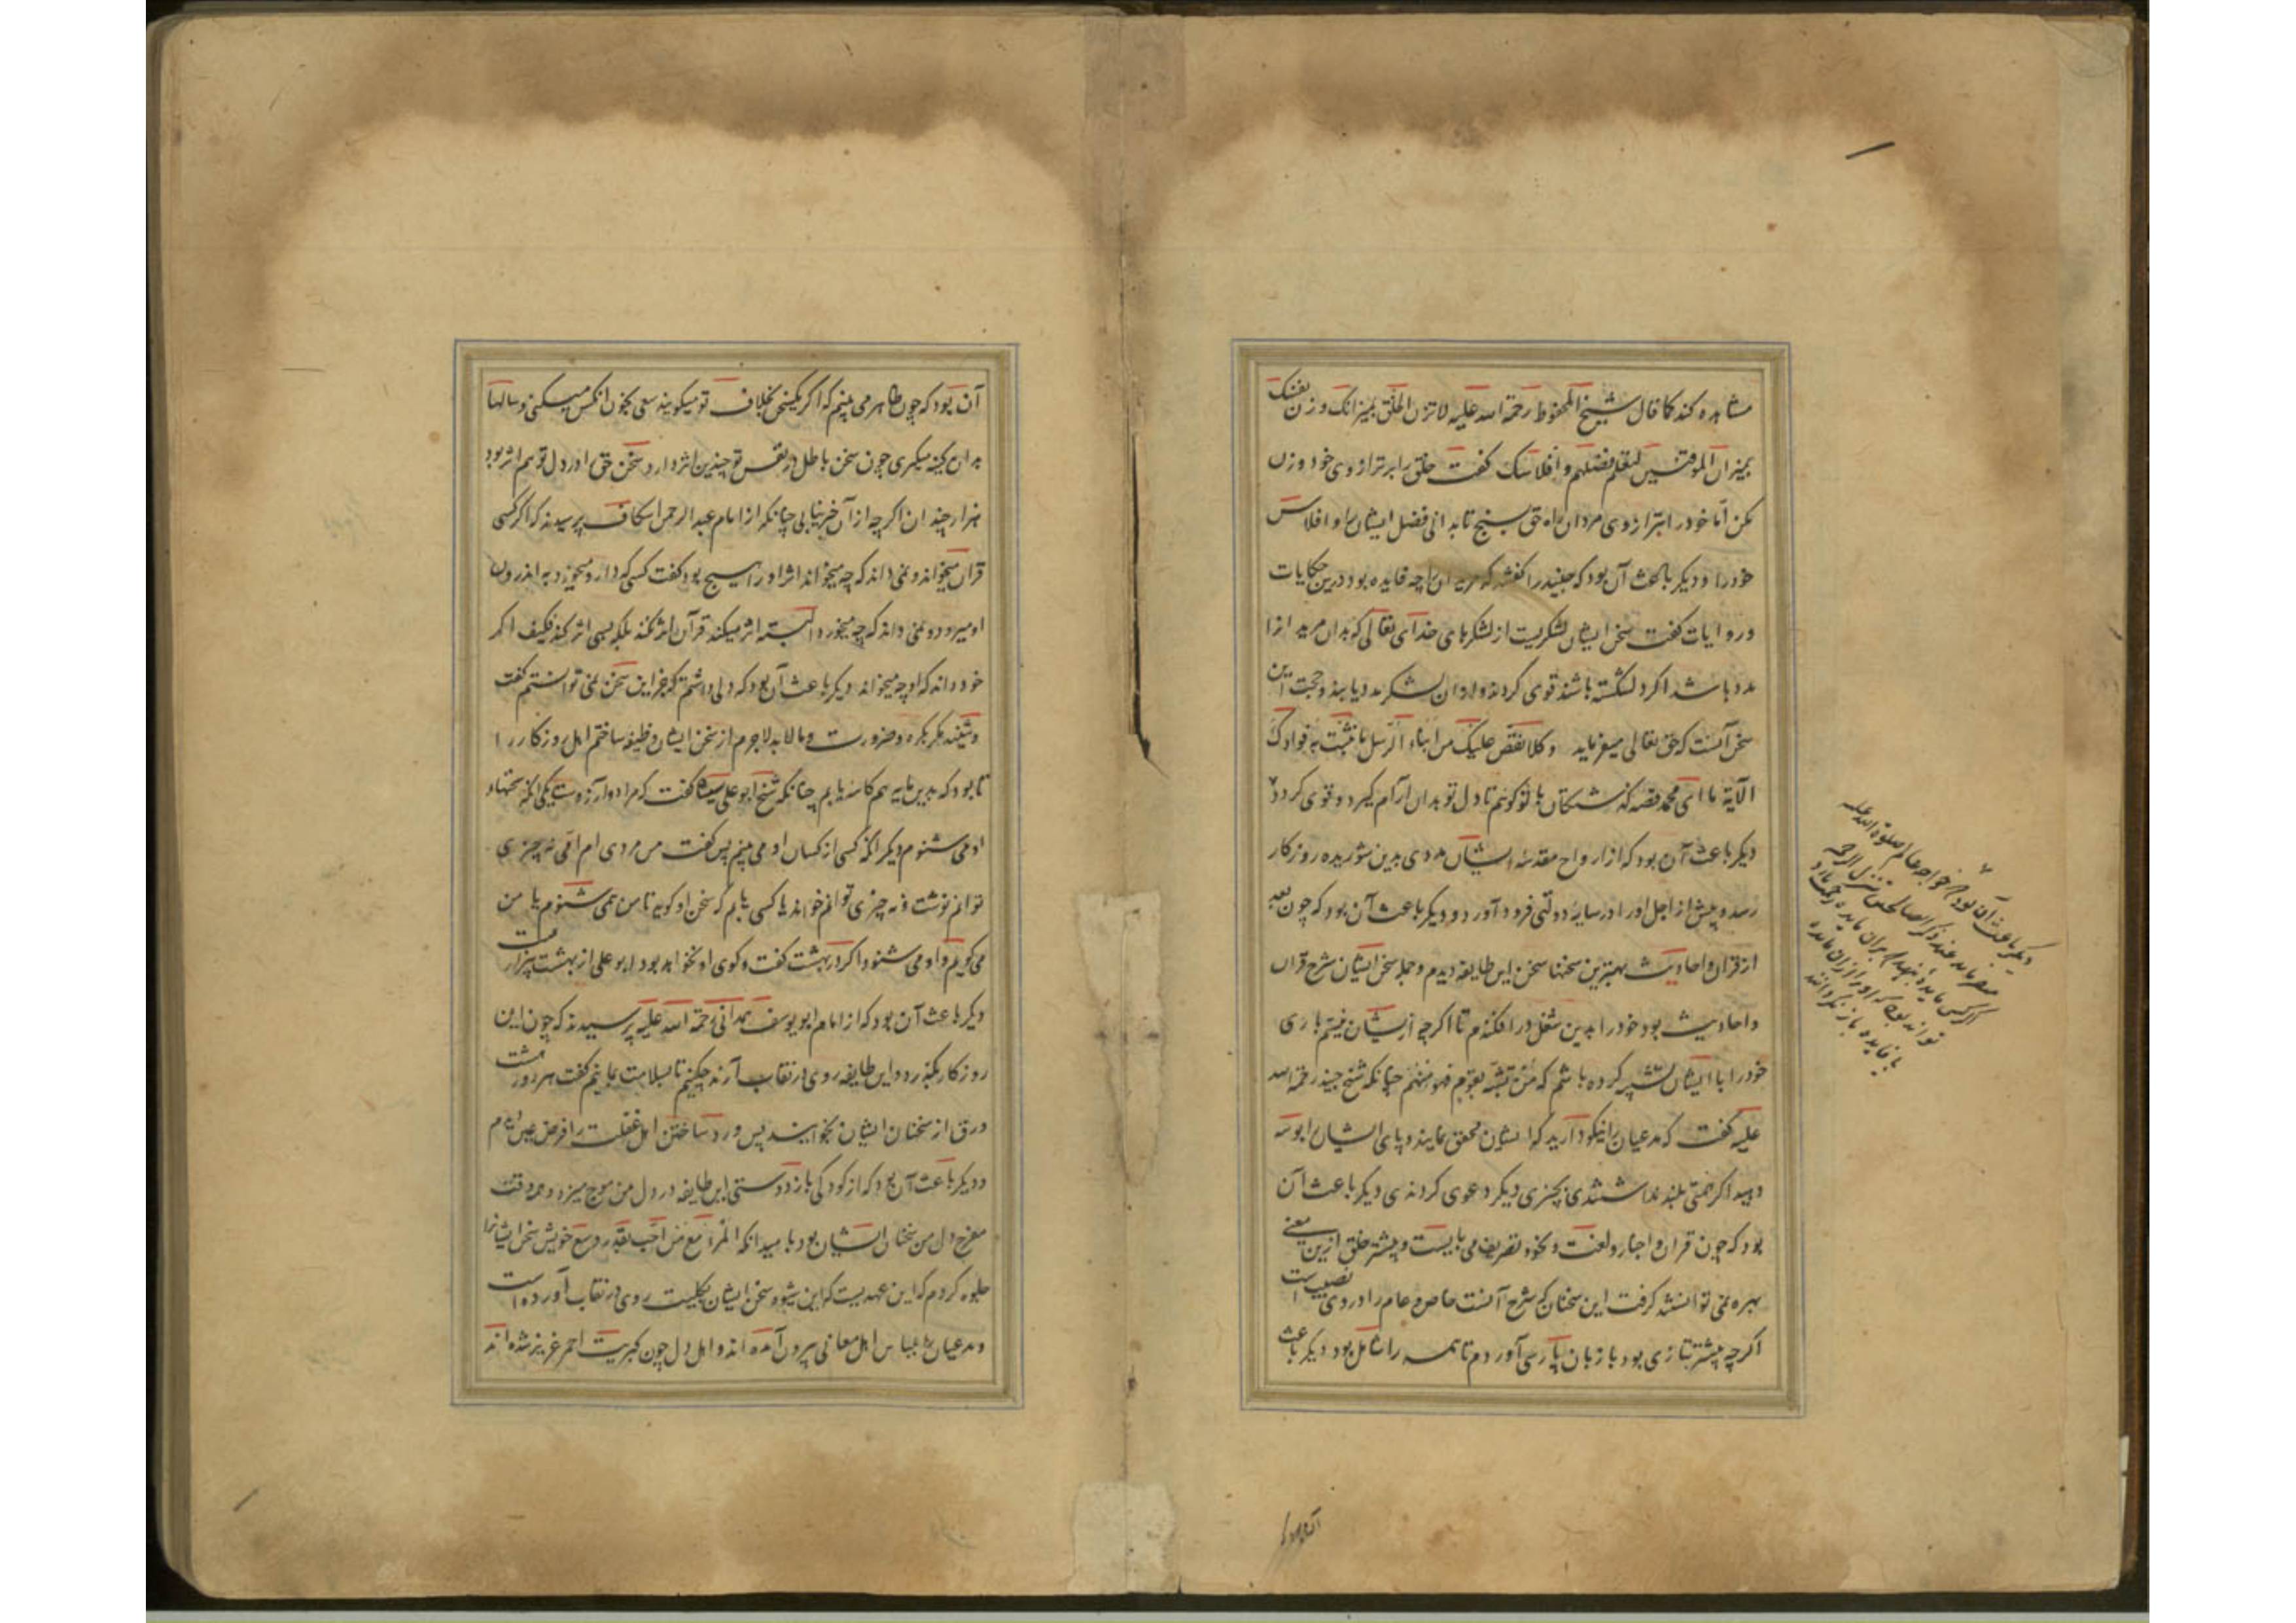 مشاهده کند کما قال شیخ المحفوظ رحمة الله علیه لا تزن الخلق بمیزانک وزن نفسک
بمیزان الموقنین لتعلم فضلهم و افلاسک گفت خلق را بر ترازوی خود وزن
مکن اما خود را بترازوی مردان راه حق بسنج تا بدانی فضل ایشان و افلاس
خود را و دیگر باعث آن بود که جنید را گفتند که مریدان را چه فایده بود درین حکایات
و روایات گفت سخن ایشان لشکریست از لشکرهای خدای تعالی که بدان مرید را
مدد باشد اگر دلشکسته باشند قوی گردند و از آن لشکر مدد یابند و حجت این
سخن آنست که حق تعالی میفرماید و کلا نقص علیک من انباء الرسل ما نثبت به فؤادک
الآیة ما ای محمد قصه گذشتگان با تو گوییم تا دل تو بدان آرام گیرد و قوی گردد
دیگر باعث آن بود که از ارواح مقدسه ایشان مددی بدین شوریده روزگار
رسد و پیش از اجل او را در سایه دولتی فرود آورد و دیگر باعث آن بود که چون بعد
از قران و احادیث بهترین سخنها سخن این طایفه دیدم و جمله سخن ایشان شرح قران
و احادیث بود خود را بدین شغل در افکندم تا اگر چه از ایشان نیستم باری
خود را با ایشان تشبیه کرده باشم که من تشبه بقوم فهو منهم چنانکه شیخ جنید رحمة الله
علیه گفت که مدعیان را نیکو دارید که ایشان محقق نمایند و پای ایشان را بوسه
دهید اگر همتی بلند نداشتندی بچیزی دیگر دعوی کردندی دیگر باعث آن
بود که چون قران و اخبار و لغت و نحو و تصریف می بایست و بیشتر خلق ازین معنی
بهره نمی توانستند گرفت این سخنان که شرح آنست خاص و عام را در وی نصیب است
اگر چه بیشتر تازی بود با زبان پارسی آوردم تا همه را شامل بود دیگر باعث
دیگر باعث آن بود که خواجه عالم صلوة الله علیه
میفرماید عند ذکر الصالحین تنزل الرحمة
اگر کسی مایده نهد که بران مایده رحمت بارد
تواند بود که او را از ان مایده
بی فایده باز نگردانند
آن بود که
آن بود که چون ظاهر می بینم که اگر یکی سخنی بخلاف تو میگوید سعی بخون آنکس میکنی و سالها
بدان کینه میگیری چون سخن باطل در نفس تو چندین اثر دارد سخن حق را در دل تو هم اثر بود
هزار چندان اگر چه از آن خبر نیابی چنانکه از امام عبد الرحمن اسکاف پرسیدند که اگر کسی
قران میخواند و نمی داند که چه میخواند اثر او را هیچ بود گفت کسی که دارو میخورد به اندرون
او میرود و نمی داند که چه میخورد البته اثر میکند قرآن اثر نکند بلکه بسی اثر کند فکیف اگر
خود داند که او چه میخواند دیگر باعث آن بود که دلی داشتم که جز این سخن نمی توانستم گفت
و شنید مگر بکره و ضرورت و مالابد لاجرم از سخن ایشان وظیفه ساختم اهل روزگار را
تا بود که بدین مایه هم کاسه یابم چنانکه شیخ ابو علی سیاه گفت که مرا دو آرزوست یکی آنکه سخنهاء
او می شنوم دیگر آنکه کسی از کسان او می بینم پس گفت من مردی ام امی نه چیزی
توانم نوشت و نه چیزی توانم خواند یا کسی یابم که سخن او گوید تا من همی شنوم یا من
می گویم و او می شنود اگر در بهشت گفت و گوی او نخواهد بود ابو علی از بهشت بیزارست
دیگر باعث آن بود که از امام ابو یوسف همدانی رحمة الله علیه پرسیدند که چون این
روزگار بگذرد و این طایفه روی در نقاب آرند چکنیم تا بسلامت بمانیم گفت هر روز هشت
ورق از سخنان ایشان بخوانید پس ورد ساختن اهل غفلت را فرض عین دیدم
و دیگر باعث آن بود که از کودکی باز دوستی این طایفه در دل من موج میزد و همه وقت
مفرح دل من سخنان ایشان بود بامید آنکه المرء مع من احب بقدر وسع خویش سخن ایشانرا
جلوه کردم که این عهدیست که این شیوه سخن ایشان بکلیت روی در نقاب آورده است
و مدعیان بلباس اهل معانی بیرون آمده اند و اهل دل چون کبریت احمر عزیز شده اند